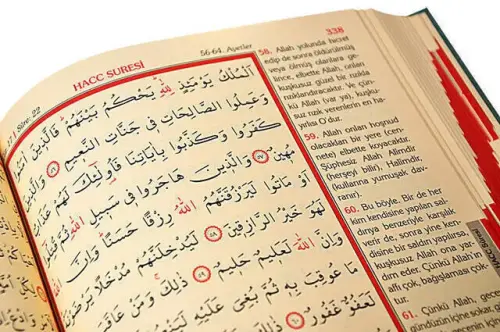 Sûre: 22
HACC SURESİ
56-64. Ayetler
338
اَلْمُلْكُ يَوْمَئِذٍ لِلّٰهِ يَحْكُمُ بَيْنَهُمْ فَالَّذِينَ اٰمَنُوا
وَعَمِلُوا الصَّالِحَاتِ فِي جَنَّاتِ النَّعِيمِ ٥٦ وَالَّذِينَ
كَفَرُوا وَكَذَّبُوا بِاٰيَاتِنَا فَاُولٰئِكَ لَهُمْ عَذَابٌ
مُهِينٌ ٥٧ وَالَّذِينَ هَاجَرُوا فِي سَبِيلِ اللّٰهِ ثُمَّ
اَوْ مَاتُوا لَيَرْزُقَنَّهُمُ اللّٰهُ رِزْقًا حَسَنًا وَاِنَّ
لَهُوَ خَيْرُ الرَّازِقِينَ ٥٨ لَيُدْخِلَنَّهُمْ مُدْخَلًا يَرْضَوْنَهُ
وَاِنَّ اللّٰهَ لَعَلِيمٌ حَلِيمٌ ٥٩ ذٰلِكَ وَمَنْ عَاقَبَ
مَا عُوقِبَ بِهِ ثُمَّ بُغِيَ عَلَيْهِ
لَعَفُوٌّ غَفُورٌ ٦٠
58. Allah yolunda hicret
edip de sonra öldürülmüş
veya ölmüş olanlara ge-
lince, elbette Allah, onları
kuşkusuz güzel bir rızıkla
rızıklandıracaktır. Ve çün-
kü Allah (var ya), kuşku-
suz rızık verenlerin en ha-
yırlısı O'dur.
59. Allah onları hoşnud
olacakları bir yere (cen-
nete) elbette koyacaktır.
Şüphesiz Allah, Alîmdir
(herşeyi bilir), Halîmdir,
(kullarına yumuşak dav-
ranır).
60. Bu böyle. Bir de her
kim kendisine yapılan sal-
dırıya benzeriyle karşılık
verir de, sonra yine ken-
disine bir saldırı yapılırsa,
kuşkusuz Allah ona yar-
dım eder. Çünkü Allah'ın
affı çok, bağışlaması çok-
61. Çünkü Allah,